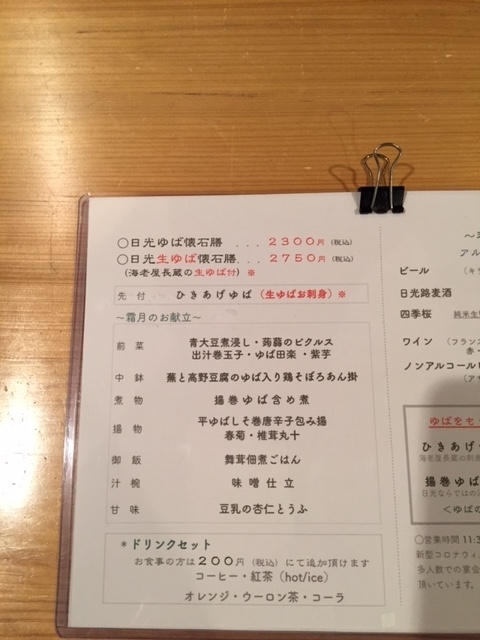 〇日光ゆば懐石膳 ．．．２３００円（税込）
〇日光生ゆば懐石膳．．．２７５０円（税込）
（海老屋長蔵の生ゆば付）※
先 付 ひきあげゆば（生ゆばお刺身）※
～霜月のお献立～
前 菜 青大豆煮浸し・蒟蒻のピクルス
出汁巻玉子・ゆば田楽・紫芋
中 鉢 蕪と高野豆腐のゆば入り鶏そぼろあん掛
煮 物 揚巻ゆば含め煮
揚 物 平ゆばしそ巻唐辛子包み揚
春菊・椎茸丸十
御 飯 舞茸佃煮ごはん
汁 椀 味噌仕立
甘 味 豆乳の杏仁とうふ
＊ドリンクセット
お食事の方は２００円（税込）にて追加頂けます
コーヒー・紅茶（hot/ice）
オレンジ・ウーロン茶・コーラ
アル
ビール
日光路麦酒
四季桜 純米生
ワイン（フランス
赤・
ノンアルコールビ
ゆばをも
ひきあげ
海老屋長蔵の刺身
揚巻ゆば
日光ならではの
＜ゆばの
〇営業時間 11:3
新型コロナウィ
多人数での宴会
頂いています。